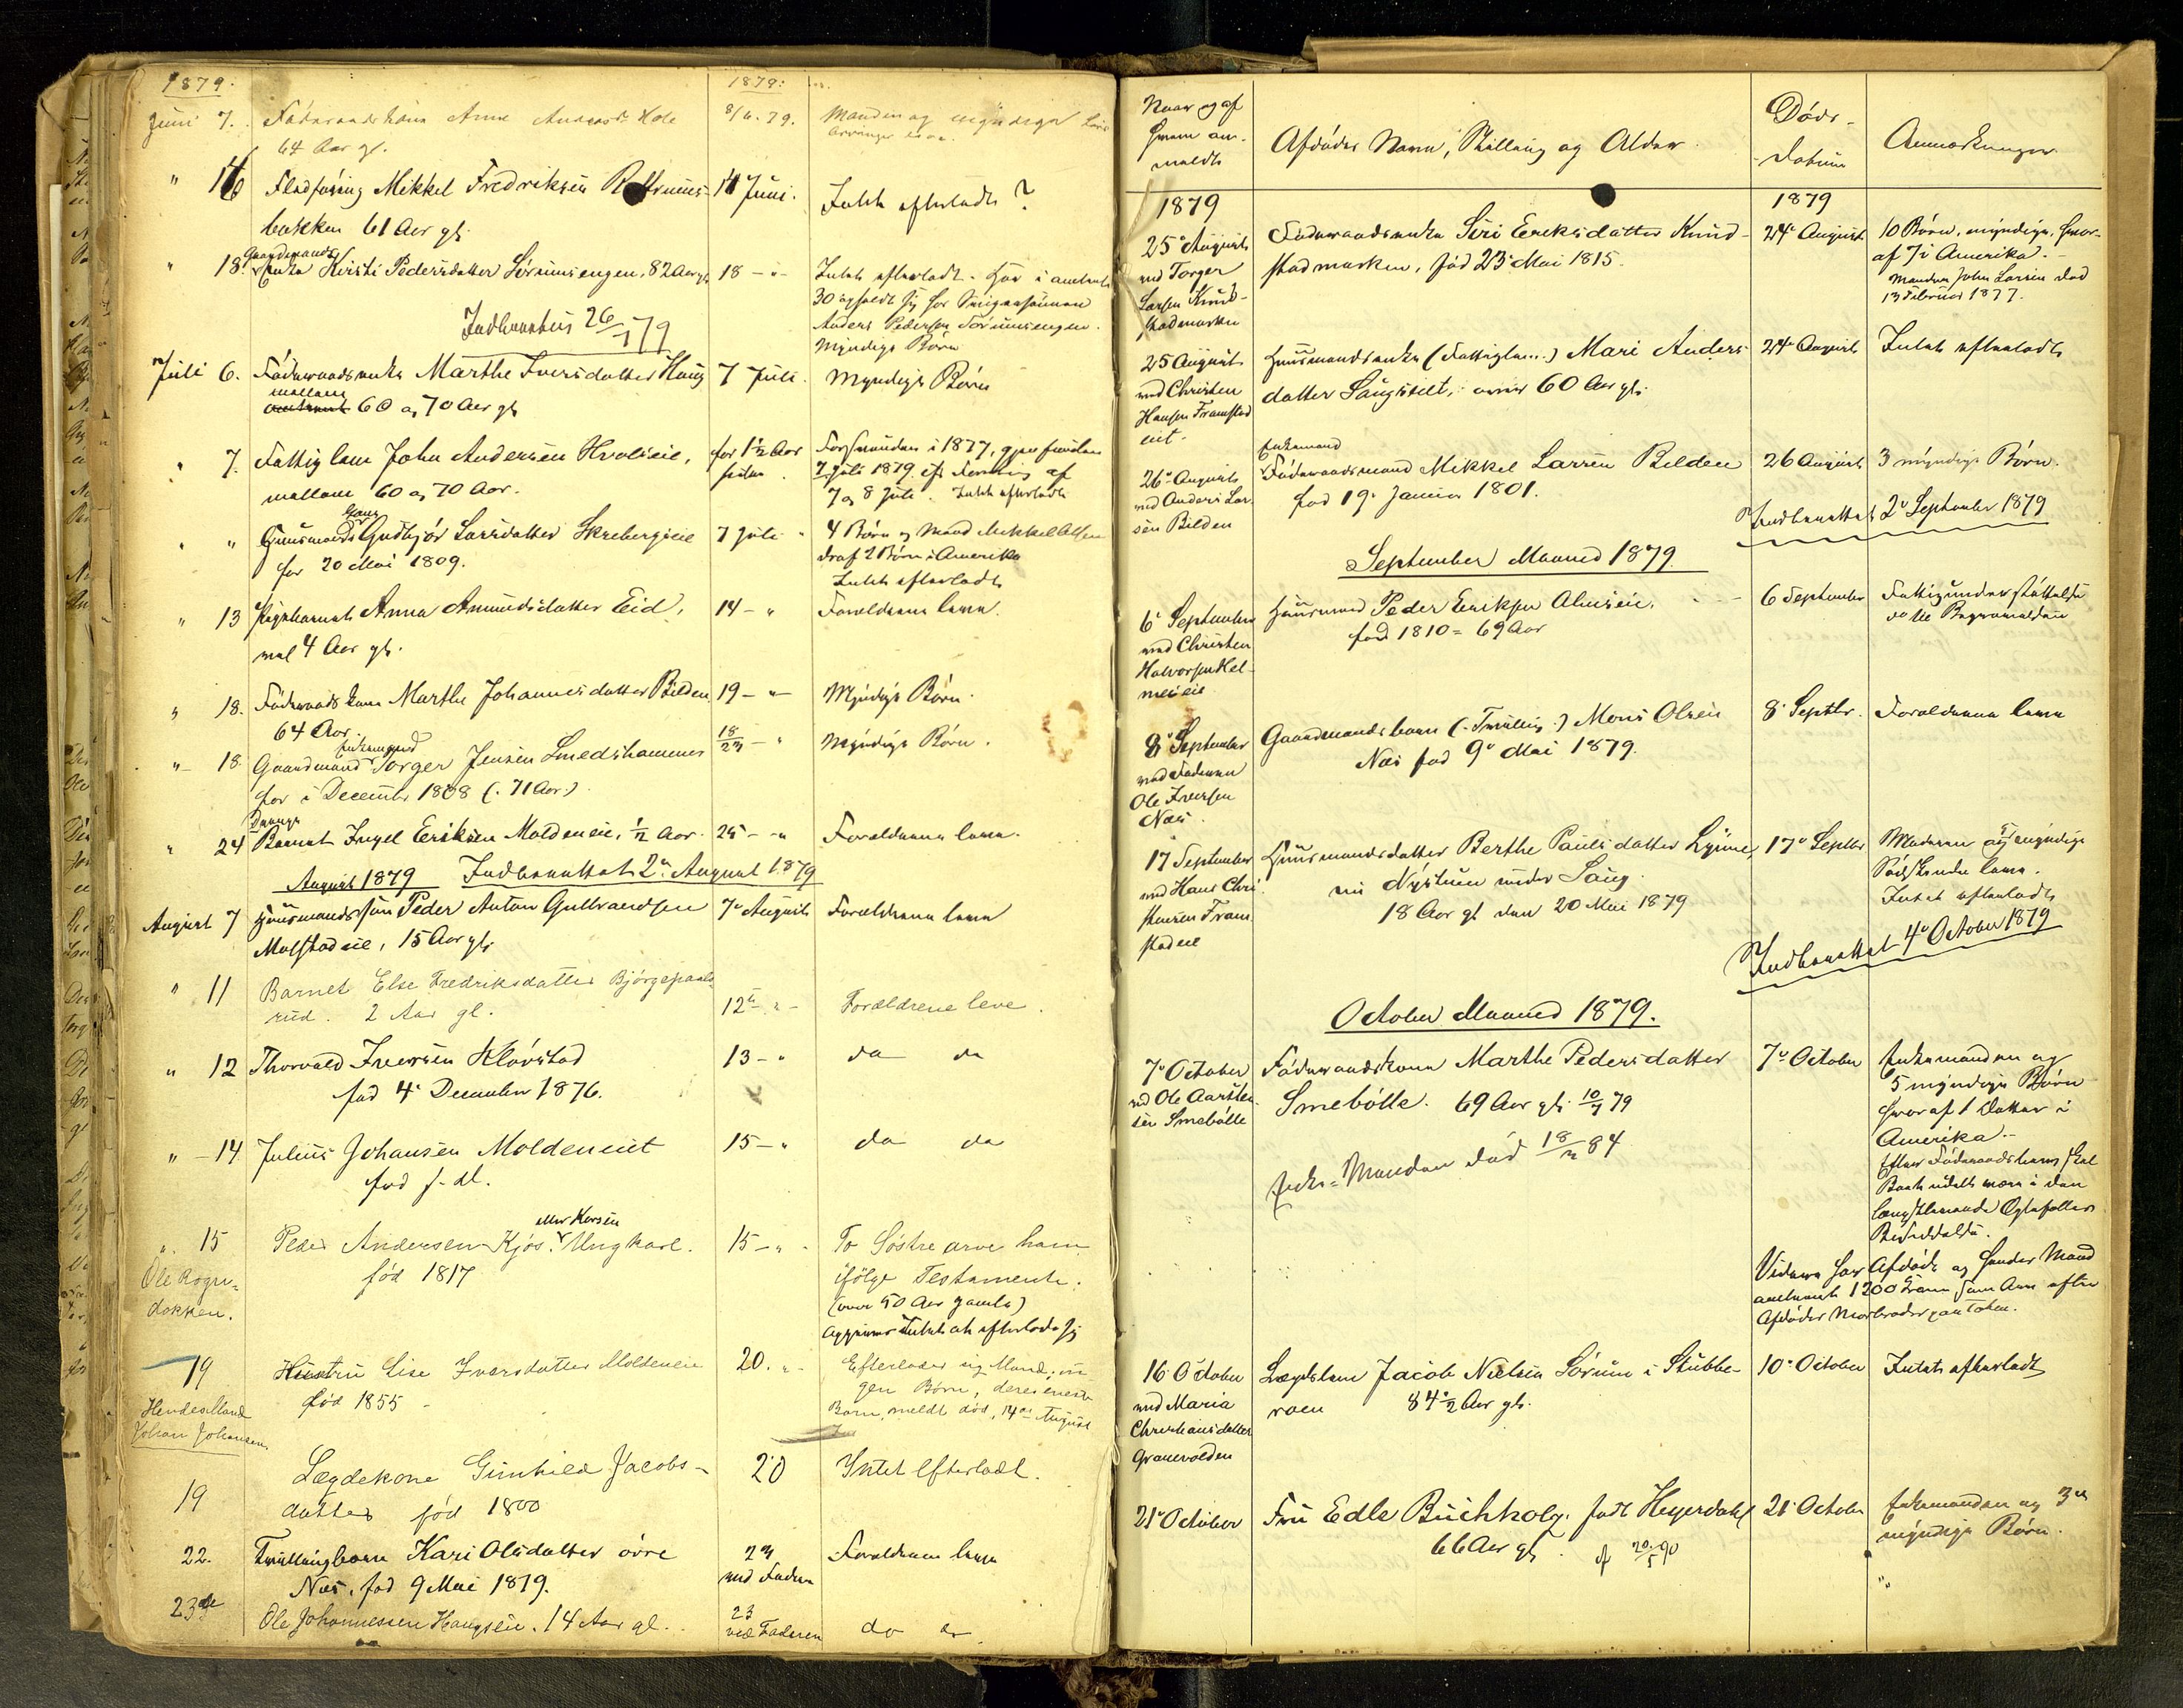 1879.
1879:
Juni 7. Føderaadskone Anne Andersd: Hole 8/6. 79. Manden og myndige
64 Aar gl.
" 16 Fladføring Mikkel Fredriksen 14 Juni. Intet efterladt ?
bakken 61 Aar gl.
" 18. Gaardmands
enke Kirsti Pedersdatter Sørumsengen, 82 Aar gl. 18 - " - Intet efterladt. Har i
30
Anders Pedersen Sørumsengen.
Myndige Børn
Indberettet 26/7 79
Juli 6. Føderaadsenke Marthe Iversdatter Haug 7 Juli. Myndige Børn
mellem
60 og 70 Aar gl.
" 7. Fattiglem John Andersen Hvalseie, for 1½ Aar Forsvunden i 1877, gjenfunden
mellem 60 og 70 Aar. siden. 7 Juli 1879. af
7 og 8 Juli. Intet efterladt
" " Huusmands Gudbjør Larsdatter Skrebergseie 7 Juli " 4 Børn og Mand Mikkel Olsen
før 20 Mai 1809. deraf 2 Børn i Amerika
Intet efterladt
" 13 Pigebarnet Anna Amundsdatter Eid, 14 - " Forældrene leve.
4 Aar gl.
" 18. Føderaadskone Marthe Johannesdatter Bilden 19 - " - Myndige Børn.
64 Aar.
Enkemand
" - 18. Gaardmand Torger Jensen Smedshammer 18/23 - " Myndige Børn.
før i December 1808 (. 71 Aar.)
Drenge
" 24 Barnet Ingel Eriksen Moldeneie, ½ Aar. 25 - " Forældrene leve.
August 1879 Indberettet 2. August 1879
August 7 Huusmandssøn Peder Anton Gulbrandsen 7. August Forældrene leve
Molstadeie, 15 Aar gl.
" 11 Barnet Else Fredriksdatter Bjørgepaals
rud. 2 Aar gl. 12te " - Forældrene leve.
" 12 Thorvald Iversen Kløvstad 13 - " do do
fød 4. December 1876.
" - 14. Julius Johansen Moldeneiet 15 - " do do
fød
eller Korsen
" 15 Peder Andersen Kjøs. Ungkarl. 15 - " - To Søstre arve ham
Ole Rogne- fød 1817 ifølge Testamente.
dokken. (over 50 Aar gamle)
Intet at efterlade sig
19 Hustru Lise Iversdatter Moldeneie 20. " - Efterlader sig Mand; in-
Hendes Mand fød 1855 - gen Børn, deres eneste
Johan Johansen Barn, meldt død, 14de August
19 Lægdekone Gunhild Jacobs- 20 Intet Efterladt.
datter fød 1800
22. Tvillingbarn Kari Olsdatter øvre 23 Forældrene leve
Næs, fød 9 Mai 1879. ved Faderen
23de Ole Johannessen Haugseie. 14 Aar gl. 23 do do
ved Faderen
Naar og af
hvem an-
meldt
Afdødes Navn, Stilling og Alder.
Døds-
datum
Anmærkninger
1879
1879
25. August Føderaadsenke Siri Eriksdatter Knud- 24. August 10 Børn, myndige, hvor-
ved Torger stadmarken, fød 23. Mai 1815. af 7 i Amerika. -
Larsen Knud- Manden John Larsen død
stadmarken 13 Februar 1877.
25 August Huusmandsenke (Fattiglem) Mari Anders- 24. August Intet efterladt
ved Christen datter Saugstelt, over 60 Aar gl.
Hansen Framstad
eiet.
Enkemand
26. August Føderaadsmand Mikkel Larsen Bilden 26 August 3 myndige Børn.
ved Anders Lar- fød 19. Januar 1801.
sen Bilden
Indberettet 2. September 1879
September Maaned 1879.
6. September Huusmand Peder Eriksen Almseie. 6 September Fattigunderstøttelse
ved Christen fød 1810 = 69 Aar
Halvorsen Hel-
meseie
8. September Gaardmandsbarn (Tvilling) Mons Olsen 8. Septbr. Forældrene leve
ved Faderen Næs fød 9. Mai 1879.
Ole Iversen
Næs.
17 September Huusmandsdatter Berthe Paulsdatter Lynne, 17. Septbr Moderen og myndige
ved Hans Chri- nu Nystuen under Saug. Sødskende leve.
stensen Fram 18 Aar gl. den 20 Mai 1879 Intet efterladt
stadeie
Indberettet 4. October 1879
October Maaned 1879.
7. October Føderaadskone Marthe Pedersdatter 7. October Enkemanden og
ved Ole Aarsten- Smebølle. 69 Aar gl. 10/7 79 5 myndige Børn
sen Smebølle hvoraf 1 Datter i
Amerika. -
Enke-Manden død 18/2 84 Efter Føderaadskonen skal
Boet udelt være i den
længstlevende Ægtefælles
Besiddelse.
Videre har Afdøde og hendes Mand
anvendt 1200 Kroner som Arv efter
Afdødes Morbroder paa Toten.
16. October Lægdslem Jacob Nielsen Sørum i Stubbe- 10. October Intet efterladt
ved Maria roen 84½ Aar gl.
Christiansdatter
Granevolden
21. October Fru Edle Buchholz. født Heyerdahl 21. October Enkemanden og 3
66 Aar gl. 20/5 90 myndige Børn.